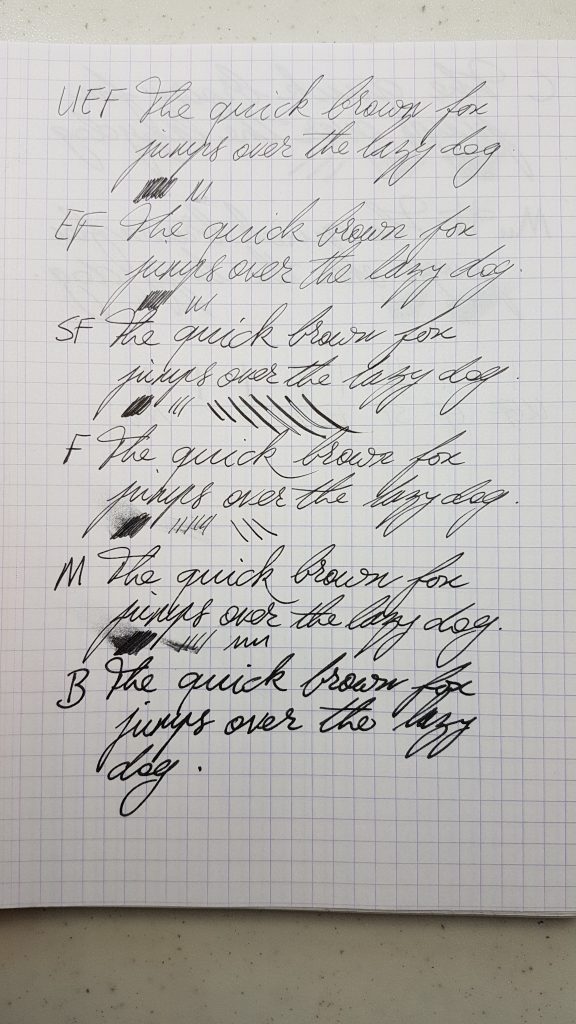 UEF The quick brown fox
jumps over the lazy dog
EF The quick brown fox
jumps over the lazy dog.
SF The quick brown fox
jumps over the lazy dog.
F The quick brown fox
jumps over the lazy dog.
M The quick brown fox
jumps over the lazy dog.
B The quick brown fox
jumps over the lazy
dog.